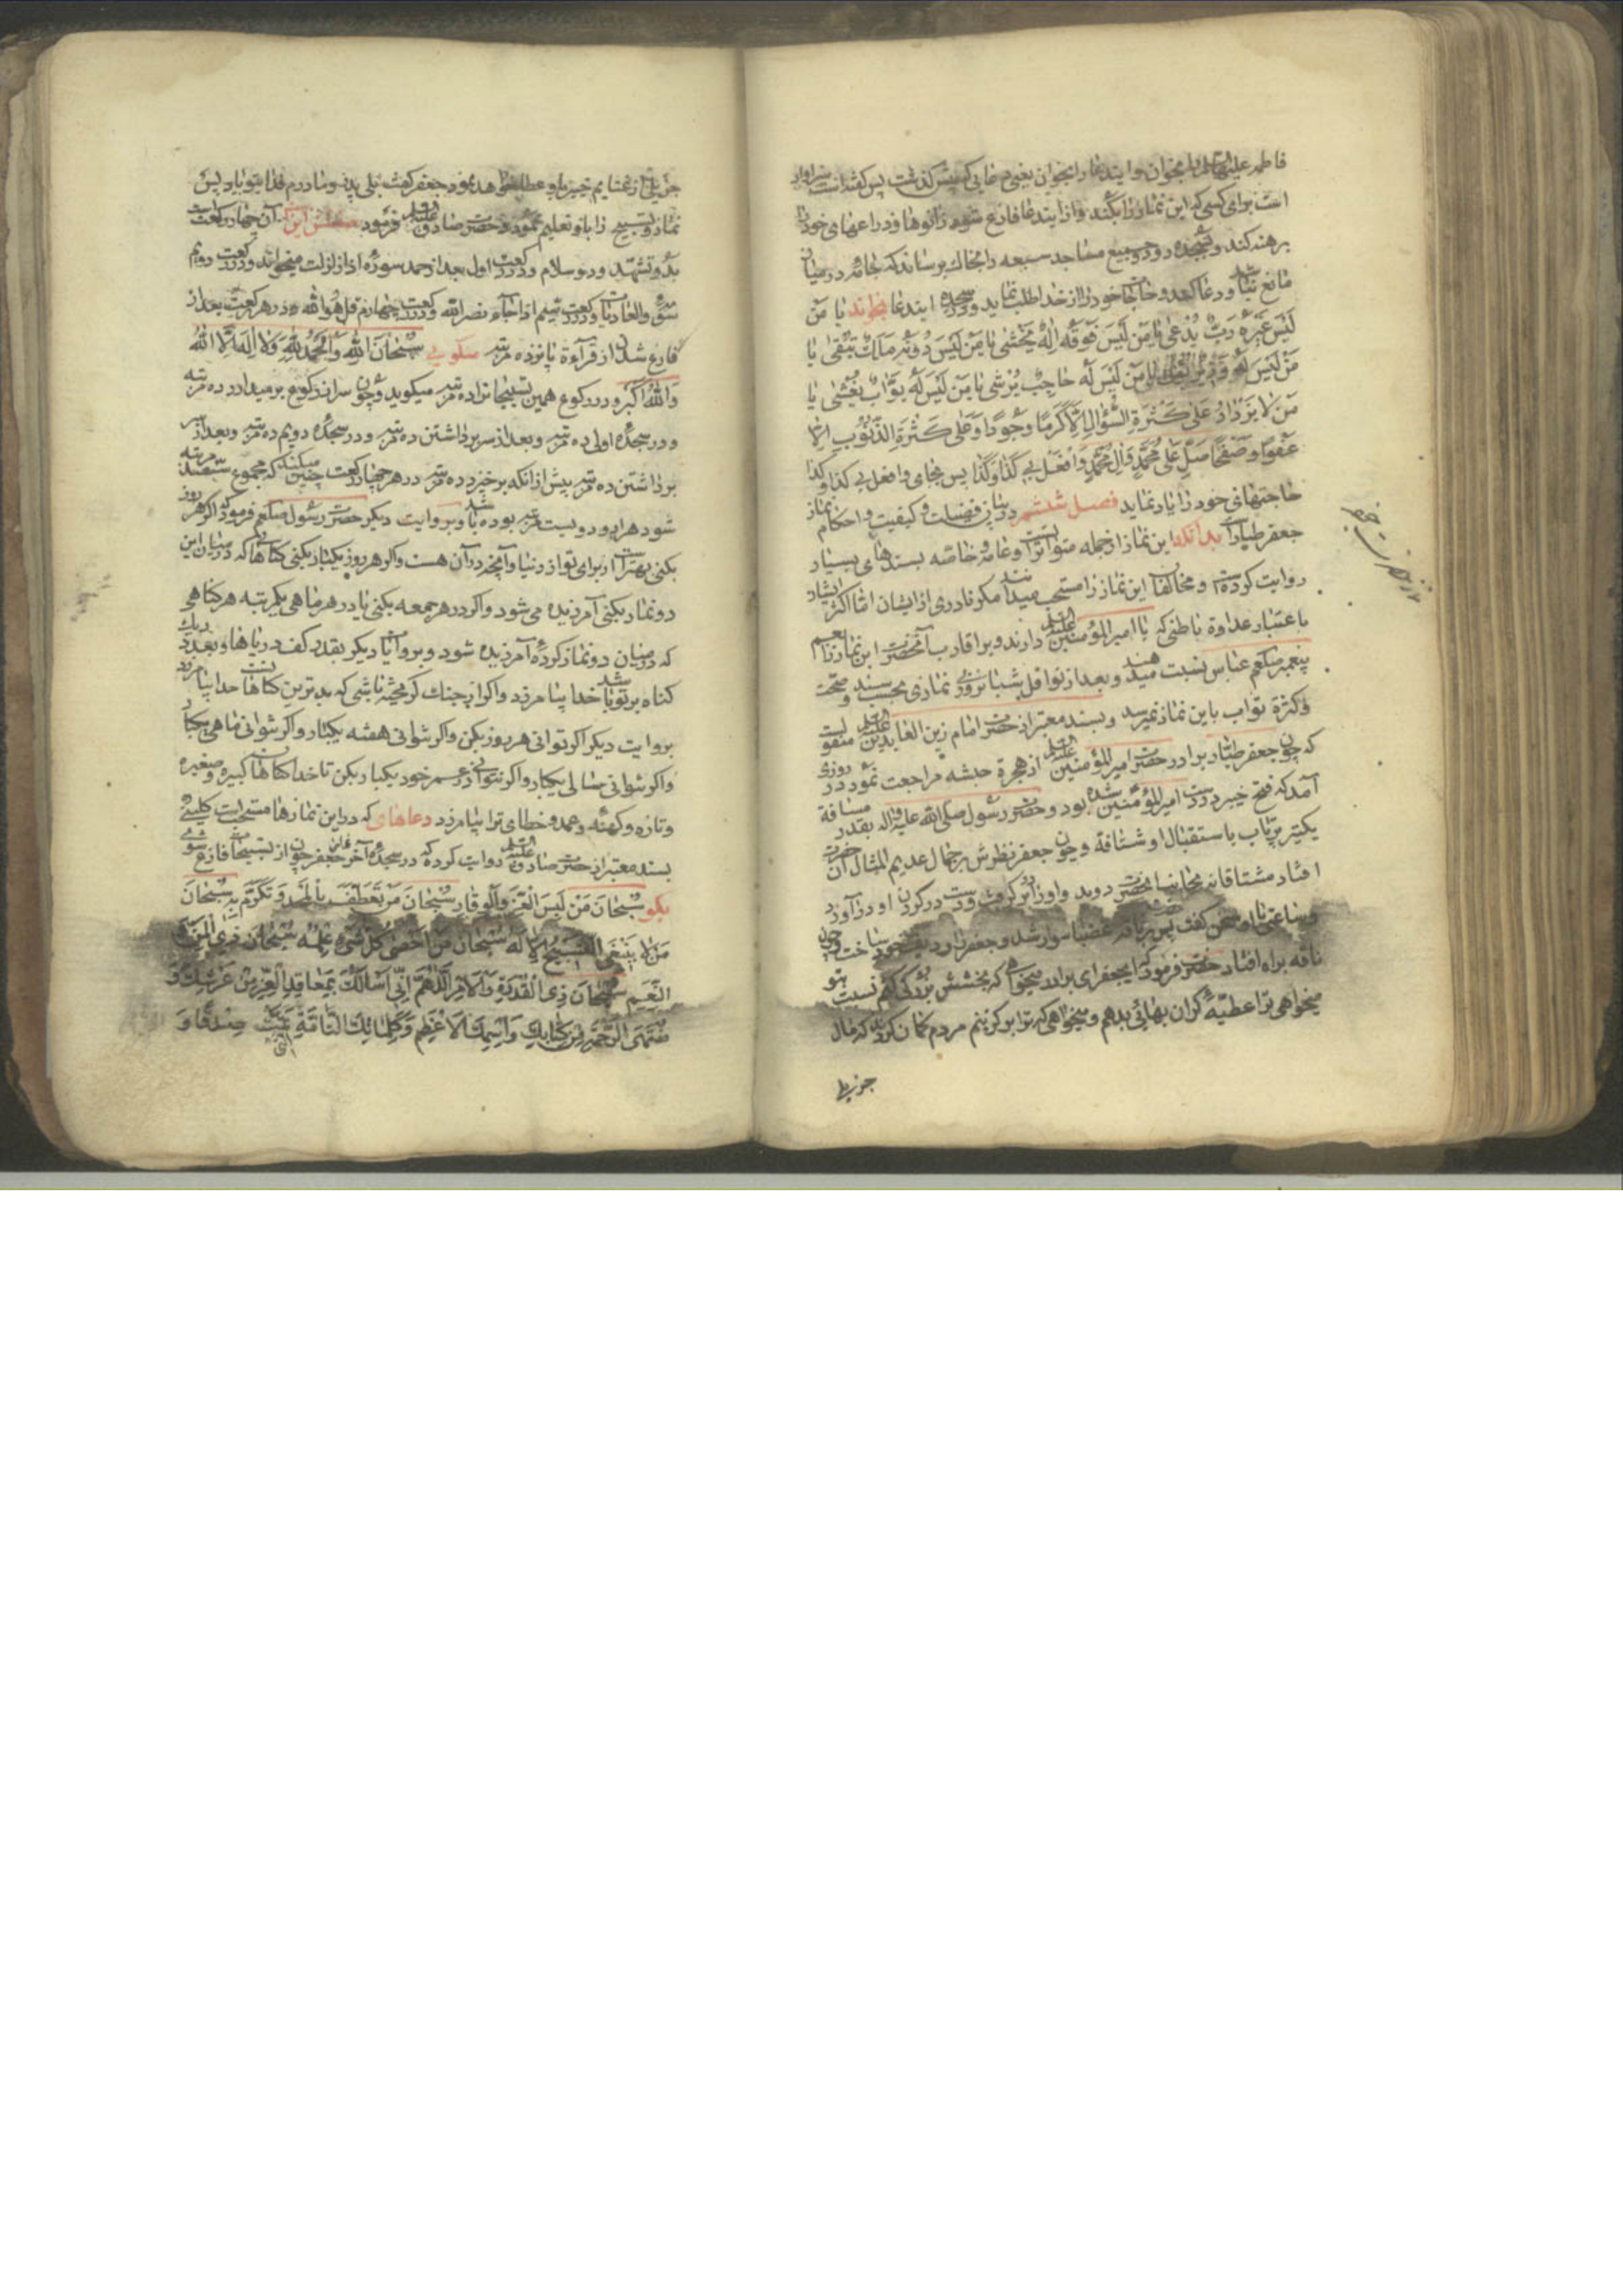 فاطمه علیها السلام را بخوان و ایندعا را بخوان یعنی دعایی که پیش گذشت پس گفته است سزاوار
است برای کسی که این نماز را بکند و از ایندعا فارغ شود زانوها و ذراعهای خود را
برهنه کند و بسجده رود و جمیع مساجد سبعه را بخاک برساند که جامه در میان
مانع نباشد و دعا کند و حاجات خود را از خدا طلب نماید و در سجده ایندعا بخواند یا مَن
لَیسَ غَیرَهُ رَبٌّ یُدعی یا مَن لَیسَ فَوقَهُ اِلهٌ یُخشی یا مَن لَیسَ دُونَهُ مَلِکٌ یُتَّقی یا
مَن لَیسَ لَهُ وَزیرٌ یا مَن لَیسَ لَهُ حاجِبٌ یُرشی یا مَن لَیسَ لَهُ بَوّابٌ یُغشی یا
مَن لا یَزدادُ عَلی کَثرَةِ السُّؤالِ اِلّا کَرَمًا وَجُودًا وَعَلی کَثرَةِ الذُّنُوبِ اِلّا
عَفوًا وَصَفحًا صَلِّ عَلی مُحَمَّدٍ وَآلِ مُحَمَّدٍ وَافعَل بی کَذا وَکَذا پس بجای وافعل بی کذا وکذا
حاجتهای خود را یاد نماید فصل ششم در بیان فضیلت و کیفیت و احکام نماز
جعفر طیار است بدانکه این نماز از جمله متواترات است و عامه و خاصه بسندهای بسیار
روایت کرده‌اند و مخالفان این نماز را مستحب میدانند مگر نادری از ایشان اما اکثر ایشان
باعتبار عداوة باطنی که با امیرالمؤمنین علیه السلام دارند و بر اقارب آنحضرت این نماز را بعم
پیغمبر صلعم عباس نسبت میدهند و بعد از نوافل شبانروزی نمازی بحسب سند و صحت
و کثرة ثواب باین نماز نمیرسد و بسند معتبر از حضرت امام زین العابدین علیه السلام منقولست
که چون جعفر طیار برادر حضرت امیرالمؤمنین علیه السلام از هجرة حبشه مراجعت نمود در روزی
آمد که فتح خیبر بر دست امیرالمؤمنین شده بود و حضرت رسول صلی الله علیه واله بقدر مسافة
یکتیر پرتاب باستقبال او شتافة و چون جعفر نظرش بر جمال عدیم المثال آن حضرت
افتاد مشتاقانه بجانب آنحضرت دوید و او را در بر گرفت و دست در گردن او درآورد
و ساعتی با او سخن گفت پس بر ناقه غضبا سوار شد و جعفر را ردیف خود ساخت و چون
ناقه براه افتاد حضرت فرمود که ایجعفر ای برادر میخواهی که بخششی بزرگی کنم نسبت بتو
میخواهی ترا عطیّهٔ گران بهائی بدهم و میخواهی که ترا برگزینم مردم گمان کردند که مال
نماز و تسبیح را باو تعلیم نمود و حضرت صادق علیه السلام فرمود صفتش این آن چهار رکعت است
بدو تشهد و دو سلام و در رکعت اول بعد از حمد سوره اذا زلزلت میخواند و در رکعت دویم
سوره والعادیات و در رکعت سیم اذا جاء نصرالله و در رکعت چهارم قل هو الله و در هر رکعت بعد از
فارغ شدن از قرآءة پانزده مرتبه میگوید سُبحانَ اللهِ وَالحَمدُ لِلّهِ وَلا اِلهَ اِلّا اللهُ
وَاللهُ اَکبَر و در رکوع همین تسبیحات را ده مرتبه میگوید و چون سر از رکوع برمیدارد ده مرتبه
و در سجده اولی ده مرتبه و بعد از سر برداشتن ده مرتبه و در سجده دویم ده مرتبه و بعد از سر
برداشتن ده مرتبه پیش از آنکه برخیزد ده مرتبه در هر چهار رکعت چنین میکند که مجموع سیصد مرتبه
شود هزار و دویست مرتبه بوده باشد و بروایت دیگر حضرت رسول صلعم فرمود که اگر هر روز
بکنی بهتر است از برای تو از دنیا و آنچه در آن هست و اگر هر روز یکبار بکنی گناهان که در میان این
دو نماز بکنی آمرزیده می شود و اگر در هر جمعه بکنی یا در هر ماهی یکمرتبه هر گناهی
که در میان دو نماز کرده آمرزیده شود و بروایت دیگر بقدر کف دریاها و بعدد ریک
گناه بر تو باشد خدا بیامرزد و اگر از جنک گریخته باشی که بدترین گناهان است خدا بیامرزد
بروایت دیگر اگر توانی هر روز بکن و اگر نتوانی هفته یکبار و اگر نتوانی ماهی یکبار
و اگر نتوانی سالی یکبار و اگر نتوانی در عمر خود یکبار بکن تا خدا گناهان کبیره و صغیره
و تازه و کهنه و عمد و خطای ترا بیامرزد دعاهای که در این نمازها مستحب است
بسند معتبر از حضرت صادق علیه السلام روایت کرده که در سجده آخر نماز جعفر چون از تسبیحات فارغ شوی
بگو سُبحانَ مَن لَبِسَ العِزَّ وَالوَقارَ سُبحانَ مَن تَعَطَّفَ بِالمَجدِ وَتَکَرَّمَ بِهِ سُبحانَ
مَن لا یَنبَغی التَّسبیحُ اِلّا لَهُ سُبحانَ مَن اَحصی کُلَّ شَیءٍ عِلمُهُ سُبحانَ ذِی المَنِّ وَ
النِّعَمِ سُبحانَ ذِی القُدرَةِ وَالاَمرِ اَللّهُمَّ اِنّی اَسئَلُکَ بِمَعاقِدِ العِزِّ مِن عَرشِکَ وَ
مُنتَهَی الرَّحمَةِ مِن کِتابِکَ وَاسمِکَ الاَعظَمِ وَکَلِماتِکَ التّامَّةِ الَّتی تَمَّت صِدقًا وَ